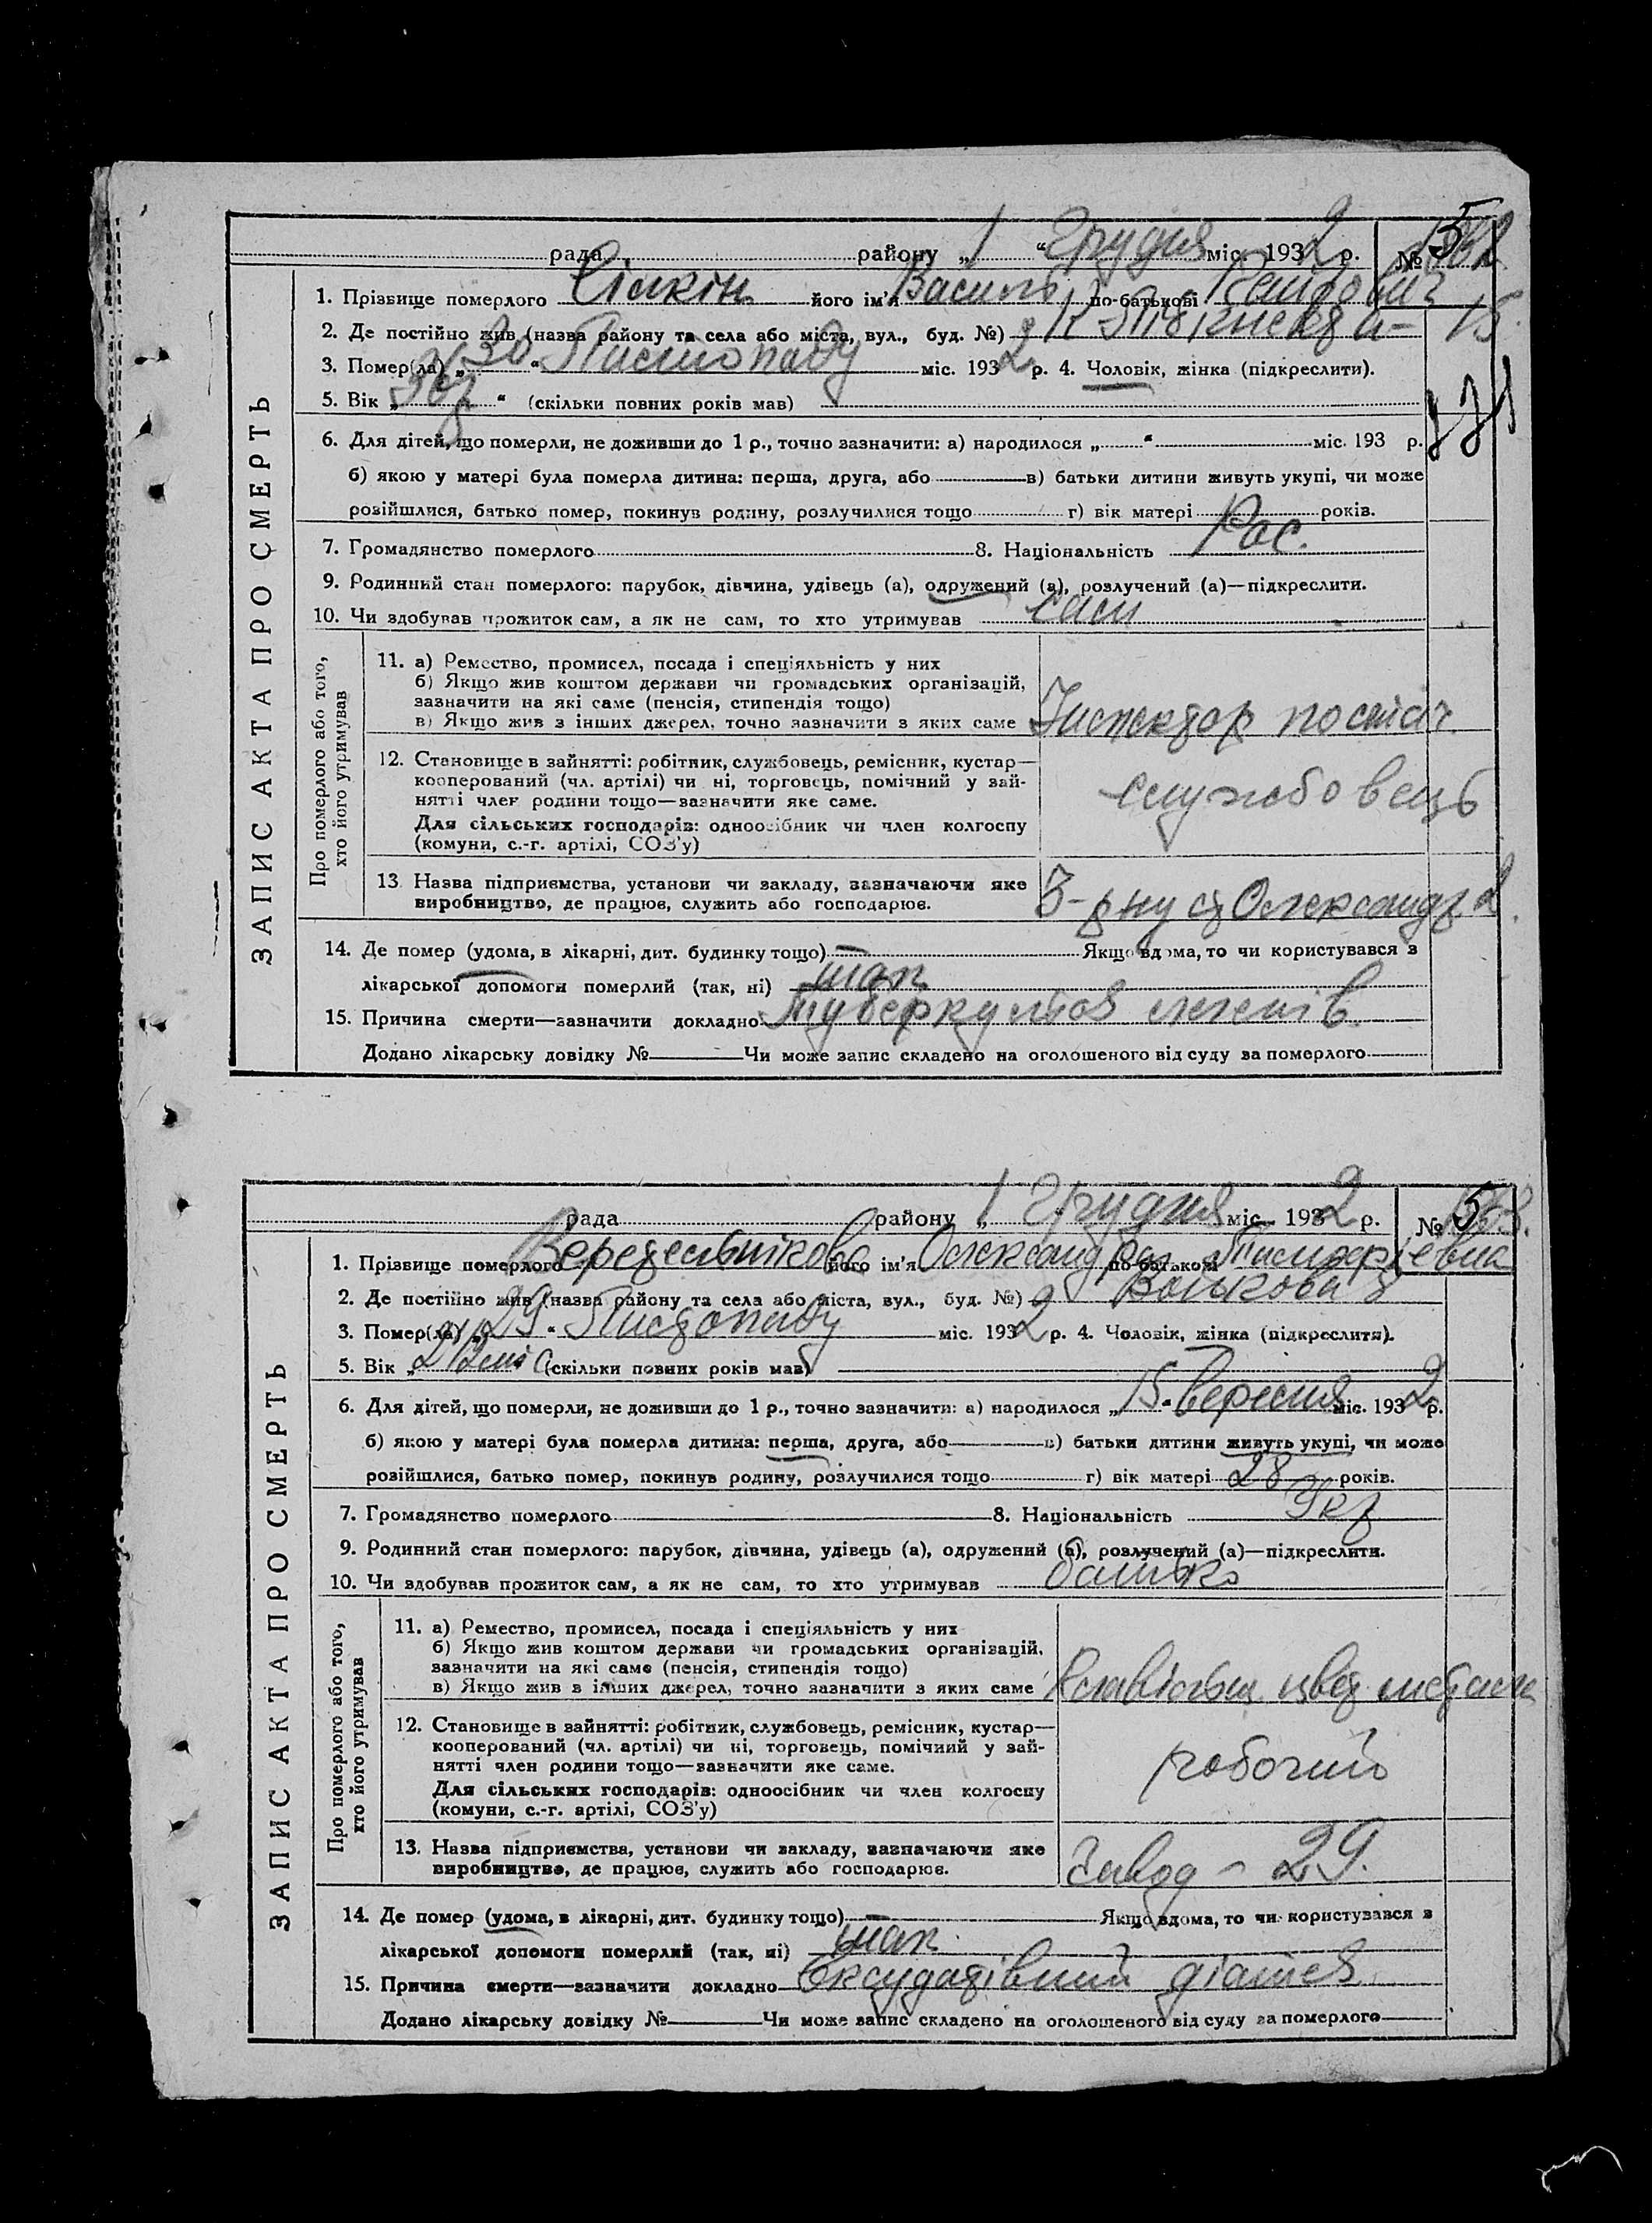 рада району „1“ Грудня міс. 1932 р. № 5
1. Прізвище померлого Сілкін його ім'я Василь по-батькові
2. Де постійно жив (назва району та села або міста, вул., буд. №) 15.
3. Помер(ла) „30“ Листопаду міс. 1932 р. 4. Чоловік, жінка (підкреслити).
5. Вік „ “ (скільки повних років мав)
6. Для дітей, що померли, не доживши до 1 р., точно зазначити: а) народилося „ “ міс. 193 р.
б) якою у матері була померла дитина: перша, друга, або в) батьки дитини живуть укупі, чи може
розійшлися, батько помер, покинув родину, розлучилися тощо г) вік матері років.
7. Громадянство померлого 8. Національність Рос.
9. Родинний стан померлого: парубок, дівчина, удівець (а), одружений (а), розлучений (а)—підкреслити.
10. Чи здобував прожиток сам, а як не сам, то хто утримував сам
ЗАПИС АКТА ПРО СМЕРТЬ
Про померлого або того,
хто його утримував
11. а) Ремество, промисел, посада і спеціяльність у них
б) Якщо жив коштом держави чи громадських організацій,
зазначити на які саме (пенсія, стипендія тощо)
в) Якщо жив з інших джерел, точно зазначити з яких саме
Інспектор постач.
12. Становище в зайнятті: робітник, службовець, ремісник, кустар—
кооперований (чл. артілі) чи ні, торговець, помічний у зай-
нятті член родини тощо—зазначити яке саме.
Для сільських господарів: одноосібник чи член колгоспу
(комуни, с.-г. артілі, СОЗ'у)
службовець
13. Назва підприємства, установи чи закладу, зазначаючи яке
виробництво, де працює, служить або господарює.
14. Де помер (удома, в лікарні, дит. будинку тощо) — Якщо вдома, то чи користувався з
лікарської допомоги померлий (так, ні) так
15. Причина смерти—зазначити докладно Туберкульоз легенів.
Додано лікарську довідку № Чи може запис складено на оголошеного від суду за померлого
рада району „1 Грудня міс. 1932 р. № 5
1. Прізвище померлого Веретельнікова його ім'я Олександра по-батькові
2. Де постійно жив (назва району та села або міста, вул., буд. №)
3. Помер(ла) „29“ Листопаду міс. 1932 р. 4. Чоловік, жінка (підкреслити).
5. Вік „2 1/2 міс (скільки повних років мав)
6. Для дітей, що померли, не доживши до 1 р., точно зазначити: а) народилося „15“ вересня міс. 1932 р.
б) якою у матері була померла дитина: перша, друга, або в) батьки дитини живуть укупі, чи може
розійшлися, батько помер, покинув родину, розлучилися тощо г) вік матері 28 років.
7. Громадянство померлого 8. Національність Укр
9. Родинний стан померлого: парубок, дівчина, удівець (а), одружений (а), розлучений (а)—підкреслити.
10. Чи здобував прожиток сам, а як не сам, то хто утримував батько
ЗАПИС АКТА ПРО СМЕРТЬ
Про померлого або того,
хто його утримував
11. а) Ремество, промисел, посада і спеціяльність у них
б) Якщо жив коштом держави чи громадських організацій,
зазначити на які саме (пенсія, стипендія тощо)
в) Якщо жив з інших джерел, точно зазначити з яких саме
12. Становище в зайнятті: робітник, службовець, ремісник, кустар—
кооперований (чл. артілі) чи ні, торговець, помічний у зай-
нятті член родини тощо—зазначити яке саме.
Для сільських господарів: одноосібник чи член колгоспу
(комуни, с.-г. артілі, СОЗ'у)
робочий
13. Назва підприємства, установи чи закладу, зазначаючи яке
виробництво, де працює, служить або господарює.
завод – 29.
14. Де помер (удома, в лікарні, дит. будинку тощо) — Якщо вдома, то чи користувався з
лікарської допомоги померлий (так, ні) так.
15. Причина смерти—зазначити докладно Ексудатівний діатез
Додано лікарську довідку № Чи може запис складено на оголошеного від суду за померлого